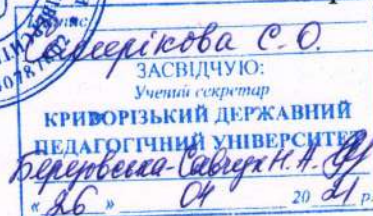 Підпис
Семерікова С. О.
ЗАСВІДЧУЮ:
Учений секретар
КРИВОРІЗЬКИЙ ДЕРЖАВНИЙ
ПЕДАГОГІЧНИЙ УНІВЕРСИТЕТ
Березовська-Савчук Н. А.
« 26 » 04 20 21 р.